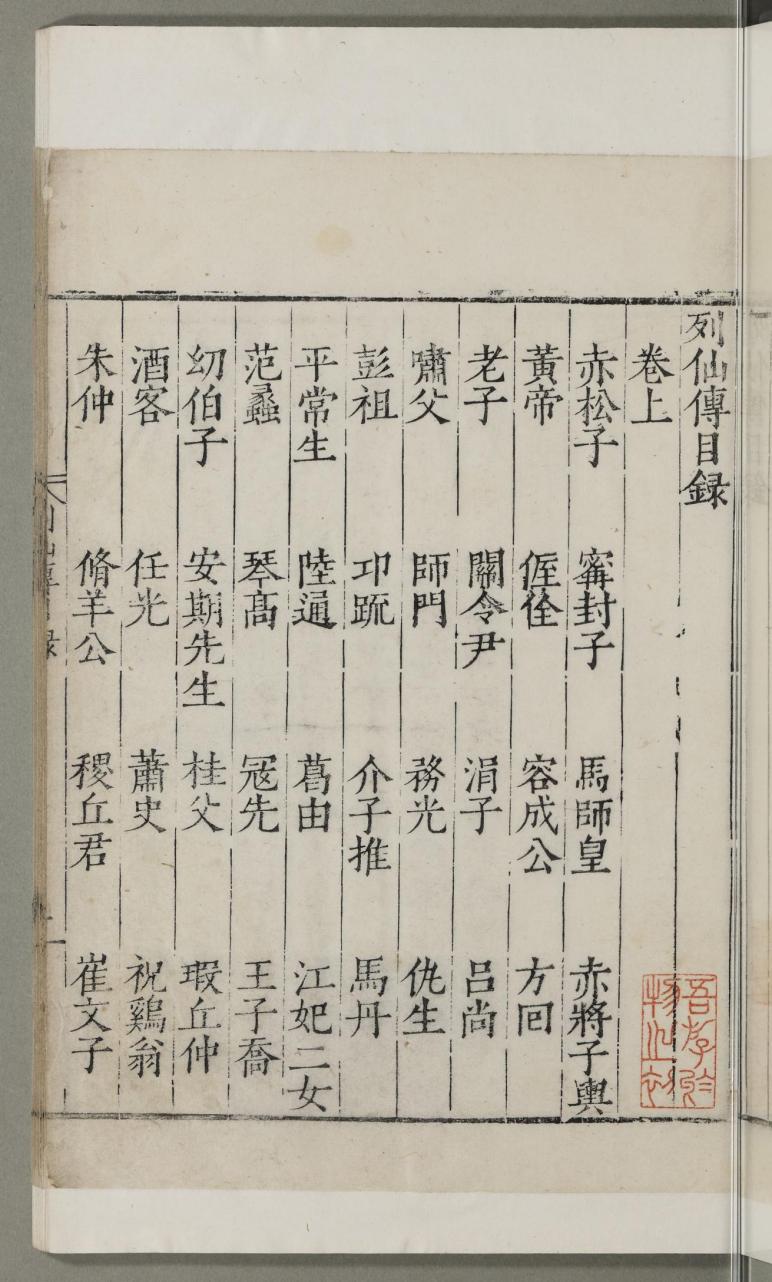 列仙傳目録
卷上
赤松子 甯封子 馬師皇 赤將子輿
黃帝 偓佺 容成公 方回
老子 關令尹 涓子 呂尚
嘯父 師門 務光 仇生
彭祖 卭疏 介子推 馬丹
平常生 陸通 葛由 江妃二女
范蠡 琴高 冦先 王子喬
幼伯子 安期先生 桂父 瑕丘仲
酒客 任光 蕭史 祝鷄翁
朱仲 脩羊公 稷丘君 崔文子